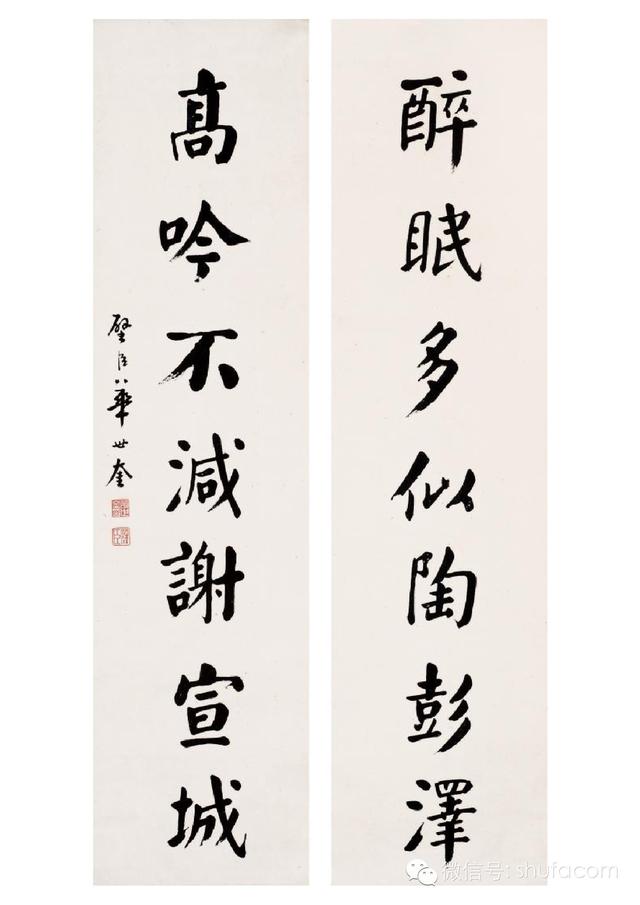 醉眠多似陶彭澤
高吟不減謝宣城
璧臣華世奎
微信号: shufacom